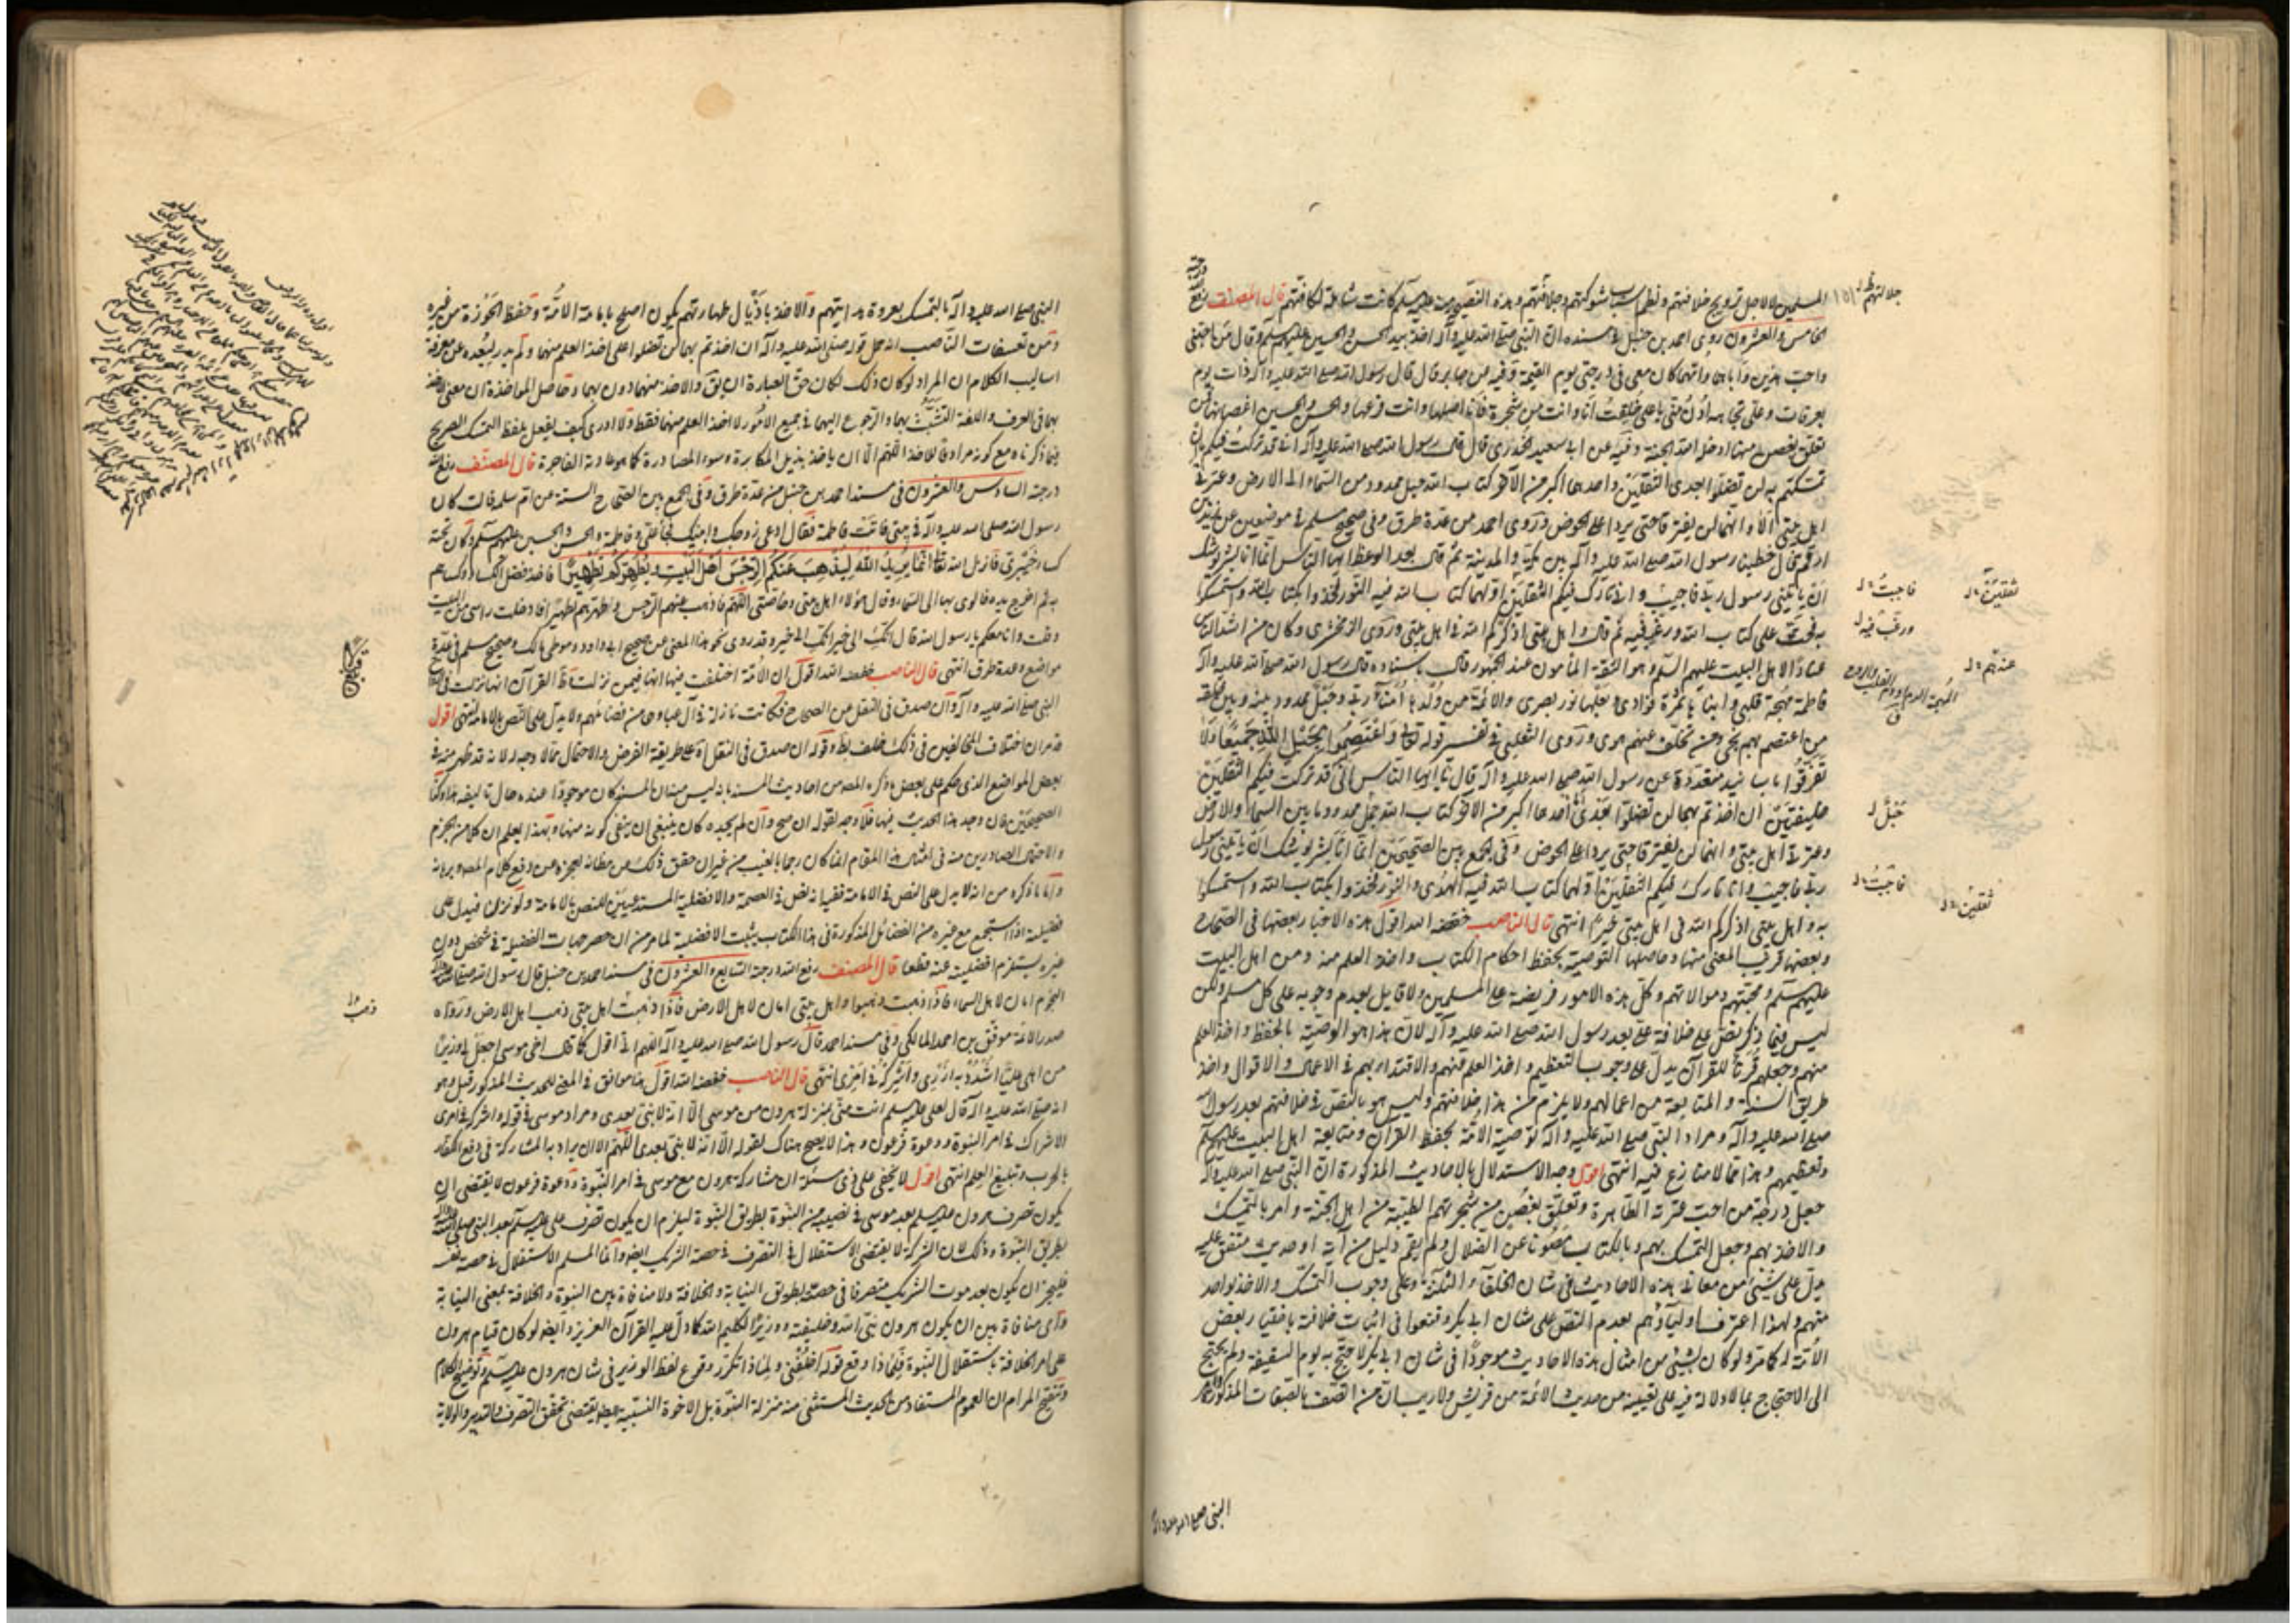 المسلمين لا لاجل ترويج خلافتهم ونظم اسباب شوكتهم وجلالتهم وهذه النقيصة كانت شاملة لكافتهم قال المصنف رفع
الخامس والعشرون روى احمد بن حنبل في مسنده ان النبي صلى الله عليه وآله اخذ بيد الحسن والحسين عليهم السلم وقال من احبني
واحب هذين واباهما وامهما كان معي في درجتي يوم القيمة وفيه من جابر قال قال رسول الله صلى الله عليه وآله ذات يوم
بعرفات وعلي تجاهه ادن مني يا علي خلقت انا وانت من شجرة فانا اصلها وانت فرعها والحسن والحسين اغصانها فمن
تعلق بغصن منها ادخله الله الجنة وفيه عن ابي سعيد الخدري قال قال رسول الله صلى الله عليه وآله اني قد تركت فيكم ما ان
تمسكتم به لن تضلوا بعدي الثقلين واحدهما اكبر من الآخر كتاب الله حبل ممدود من السماء الى الارض وعترتي
اهل بيتي الا وانهما لن يفترقا حتى يردا علي الحوض وروى احمد من عدة طرق وفي صحيح مسلم في موضعين عن زيد بن
ارقم قال خطبنا رسول الله صلى الله عليه وآله بين مكة والمدينة ثم قال بعد الوعظ ايها الناس انما انا بشر يوشك
ان يأتيني رسول ربي فاجيب واني تارك فيكم الثقلين اولهما كتاب الله فيه النور فخذوا بكتاب الله واستمسكوا
به فحث على كتاب الله ورغب فيه ثم قال واهل بيتي اذكركم الله في اهل بيتي وروى الزمخشري وكان من اشد الناس
عنادا لاهل البيت عليهم السلم وهو الثقة المأمون عند الجمهور قال باسناده قال رسول الله صلى الله عليه وآله
فاطمة مهجة قلبي وابناها ثمرة فؤادي وبعلها نور بصري والائمة من ولدها امناء ربي وحبل ممدود بينه وبين خلقه
من اعتصم بهم نجى ومن تخلف عنهم هوى وروى الثعلبي في تفسير قوله تعالى واعتصموا بحبل الله جميعا ولا
تفرقوا باسانيد متعددة عن رسول الله صلى الله عليه وآله قال يا ايها الناس اني قد تركت فيكم الثقلين
خليفتين ان اخذتم بهما لن تضلوا بعدي احدهما اكبر من الآخر كتاب الله حبل ممدود ما بين السماء والارض
وعترتي اهل بيتي وانهما لن يفترقا حتى يردا علي الحوض وفي الجمع بين الصحيحين انما انا بشر يوشك ان يأتيني رسول
ربي فاجيب وانا تارك فيكم الثقلين اولهما كتاب الله فيه الهدى والنور فخذوا بكتاب الله واستمسكوا
به واهل بيتي اذكركم الله في اهل بيتي خيرا انتهى قال الناصب خفضه الله اقول هذه الاخبار بعضها في الصحاح
وبعضها قريب المعنى منها وحاصلها التوصية بحفظ احكام الكتاب واخذ العلم منه ومن اهل البيت
عليهم السلم ومحبتهم وموالاتهم وكل هذه الامور فريضة على المسلمين ولا قايل بعدم وجوبه على كل مسلم ولكن
ليس فيما ذكر نص على خلافة علي بعد رسول الله صلى الله عليه وآله لان هذا هو الوصية بالحفظ واخذ العلم
منهم وجعلهم قرناء للقرآن يدل على وجوب التعظيم واخذ العلم منهم والاقتداء بهم في الاعمال والاقوال واخذ
طريق السنة والمتابعة من اعمالهم ولا يلزم من هذا خلافتهم وليس هو بالنص في خلافتهم بعد رسول الله
صلى الله عليه وآله ومراد النبي صلى الله عليه وآله توصية الامة بحفظ القرآن ومتابعة اهل البيت عليهم السلم
وتعظيمهم وهذا مما لا منازع فيه انتهى اقول وجه الاستدلال بالاحاديث المذكورة ان النبي صلى الله عليه وآله
جعل درجة من احب عترته الطاهرة وتعلق بغصن من شجرتهم الطيبة من اهل الجنة وامر بالتمسك
والاخذ بهم وجعل التمسك بهم وبالكتاب مصونا عن الضلال ولم يقم دليل من آية او حديث متفق عليه
يدل على شيء من معاني هذه الاحاديث في شان الخلفاء الثلثة وعلى وجوب التمسك والاخذ بواحد
منهم ولهذا اعترف اولياؤهم بعدم النص على شان ابي بكر وقنعوا في اثبات خلافة باختيار بعض
الامة له كما مر ولو كان شيء من امثال هذه الاحاديث موجودا في شان ابي بكر لاحتج به يوم السقيفة ولم يحتج
الى الاحتجاج بما لا دلالة فيه على تعيينه من حديث الائمة من قريش ولا ريب ان من اتصف بالصفات المذكورة
جلالتهم
فاجيب
ثقلين
ورغب فيه
عندهم
حبل
فاجيب
ثقلين
النبي صلى الله عليه وآله
النبي صلى الله عليه وآله بالتمسك بعروة هدايتهم والاخذ باذيال طهارتهم يكون اصلح بامامة الامة وحفظ الحوزة من غيره
ومن تعسفات الناصب انه حمل قوله صلى الله عليه وآله ان اخذتم بهما لن تضلوا على اخذ العلم منهما ولم يدر لبعده عن معرفة
اساليب الكلام ان المراد لو كان ذلك لكان حق العبارة ان يق والاخذ منهما دون بهما وحاصل المؤاخذة ان معنى الاخذ
بهما في العرف واللغة التشبث بهما والرجوع اليهما في جميع الامور لا اخذ العلم منهما فقط ولا ادري كيف يفعل بلفظ التمسك الصريح
فيما ذكرناه مع كونه مرادفا للاخذ اللهم الا ان ياخذ بذيل المكابرة وسوء المصادرة كما هو عادته الفاجرة قال المصنف رفع الله
درجته السادس والعشرون في مسند احمد بن حنبل من عدة طرق وفي الجمع بين الصحاح الستة عن ام سلمه قالت كان
رسول الله صلى الله عليه وآله في بيتي فاتت فاطمة فقال ادعي زوجك وابنيك فجاء علي وفاطمة والحسن والحسين عليهم السلم وكان تحته
كساء خيبري فانزل الله تعالى انما يريد الله ليذهب عنكم الرجس اهل البيت ويطهركم تطهيرا فاخذ فضل الكساء وكساهم
به ثم اخرج يده فالوى بها الى السماء وقال هؤلاء اهل بيتي وخاصتي اللهم فاذهب عنهم الرجس وطهرهم تطهيرا فادخلت راسي من البيت
وقلت وانا معكم يا رسول الله قال انك الى خير انك الى خير وقد روى نحو هذا المعنى من صحيح ابي داود وموطأ مالك وصحيح مسلم في عدة
مواضع وعدة طرق انتهى قال الناصب خفضه الله اقول ان الامة اختلفت فيها انها فيمن نزلت وظاهر القرآن انها نزلت في ازواج
النبي صلى الله عليه وآله وان صدق في النقل من الصحاح فكانت نازلة في آل عبا وهي من فضائلهم ولا يدل على النص بالامامة انتهى اقول
قد مر ان اختلاف المخالفين في ذلك خلف بط وقوله ان صدق في النقل آه على طريقة الفرض والاحتمال مما لا وجه له لانه قد ظهر منه في
بعض المواضع الذي حكم على بعض ما ذكره المص من احاديث المسند بانه ليس من المسند كان موجودا عنده حال تاليفه هذا وكذا
الصحيحين فان وجد هذا الحديث فيها فلا وجه لقوله ان صح وان لم يجده كان ينبغي ان ينفي كونه منها وبهذا يعلم ان كلا من الجزم
والاحتمال الصادرين منه في امثال هذا المقام انما كان رجما بالغيب من غير ان حقق ذلك من مظانه لعجزه من دفع كلام المص وبرهانه
واما ما ذكره من انه لا يدل على النص في الامامة ففيه انه نص في العصمة والافضلية المستدعيين للنص بالامامة ولو نزل فيدل على
فضيلة اذا استجمع مع غيره من الفضائل المذكورة في هذا الكتاب يثبت الافضلية لما مر من ان حصر جهات الفضيلة في شخص دون
غيره يستلزم افضليته عنه قطعا قال المصنف رفع الله درجته السابع والعشرون في مسند احمد بن حنبل قال رسول الله صلى الله عليه وآله
النجوم امان لاهل السماء فاذا ذهبت ذهبوا واهل بيتي امان لاهل الارض فاذا ذهبت اهل بيتي ذهب اهل الارض ورواه
صدر الائمة موفق بن احمد المالكي وفي مسند احمد قال رسول الله صلى الله عليه وآله اللهم اني اقول كما قال اخي موسى اجعل لي وزيرا
من اهلي عليا اشدد به ازري واشركه في امري انتهى قال الناصب خفضه الله اقول هذا موافق في المعنى للحديث المذكور قبل وهو
انه صلى الله عليه وآله قال لعلي عليه السلم انت مني بمنزلة هرون من موسى الا انه لا نبي بعدي ومراد موسى في قوله واشركه في امري
الاشراك في امر النبوة ودعوة فرعون وهذا لا يصح هناك لقوله الا انه لا نبي بعدي اللهم الا ان يراد به المشاركة في دفع الكفار
بالحرب وتبليغ العلم انتهى اقول لا يخفى على ذي مسكة ان مشاركة هرون مع موسى في امر النبوة ودعوة فرعون لا يقتضي ان
يكون تصرف هرون عليه السلم بعد موسى في نصيبه من النبوة بطريق النبوة ليلزم ان يكون تصرف علي عليه السلم بعد النبي صلى الله عليه وآله
بطريق النبوة وذلك لان الشركة لا يقتضي الاستقلال في التصرف في حصة الشريك ايضا وانما المسلم الاستقلال في حصة نفسه
فليجز ان يكون بعد موت الشريك متصرفا في حصته بطريق النيابة والخلافة ولا منافاة بين النبوة والخلافة بمعنى النيابة
واي منافاة بين ان يكون هرون نبي الله وخليفة ووزيرا لكليم الله كما دل عليه القرآن العزيز وايضا لو كان قيام هرون
على امر الخلافة باستقلال النبوة فلماذا وقع قوله اخلفني ولماذا تكرر وقوع لفظ الوزير في شان هرون عليه السلم وتوضيح الكلام
وتنقيح المرام ان العموم المستفاد من الحديث المستثنى منه منزلة النبوة بل الاخوة النسبية ايضا يقتضي تحقق التصرف والتدبير والولاية
ذهب